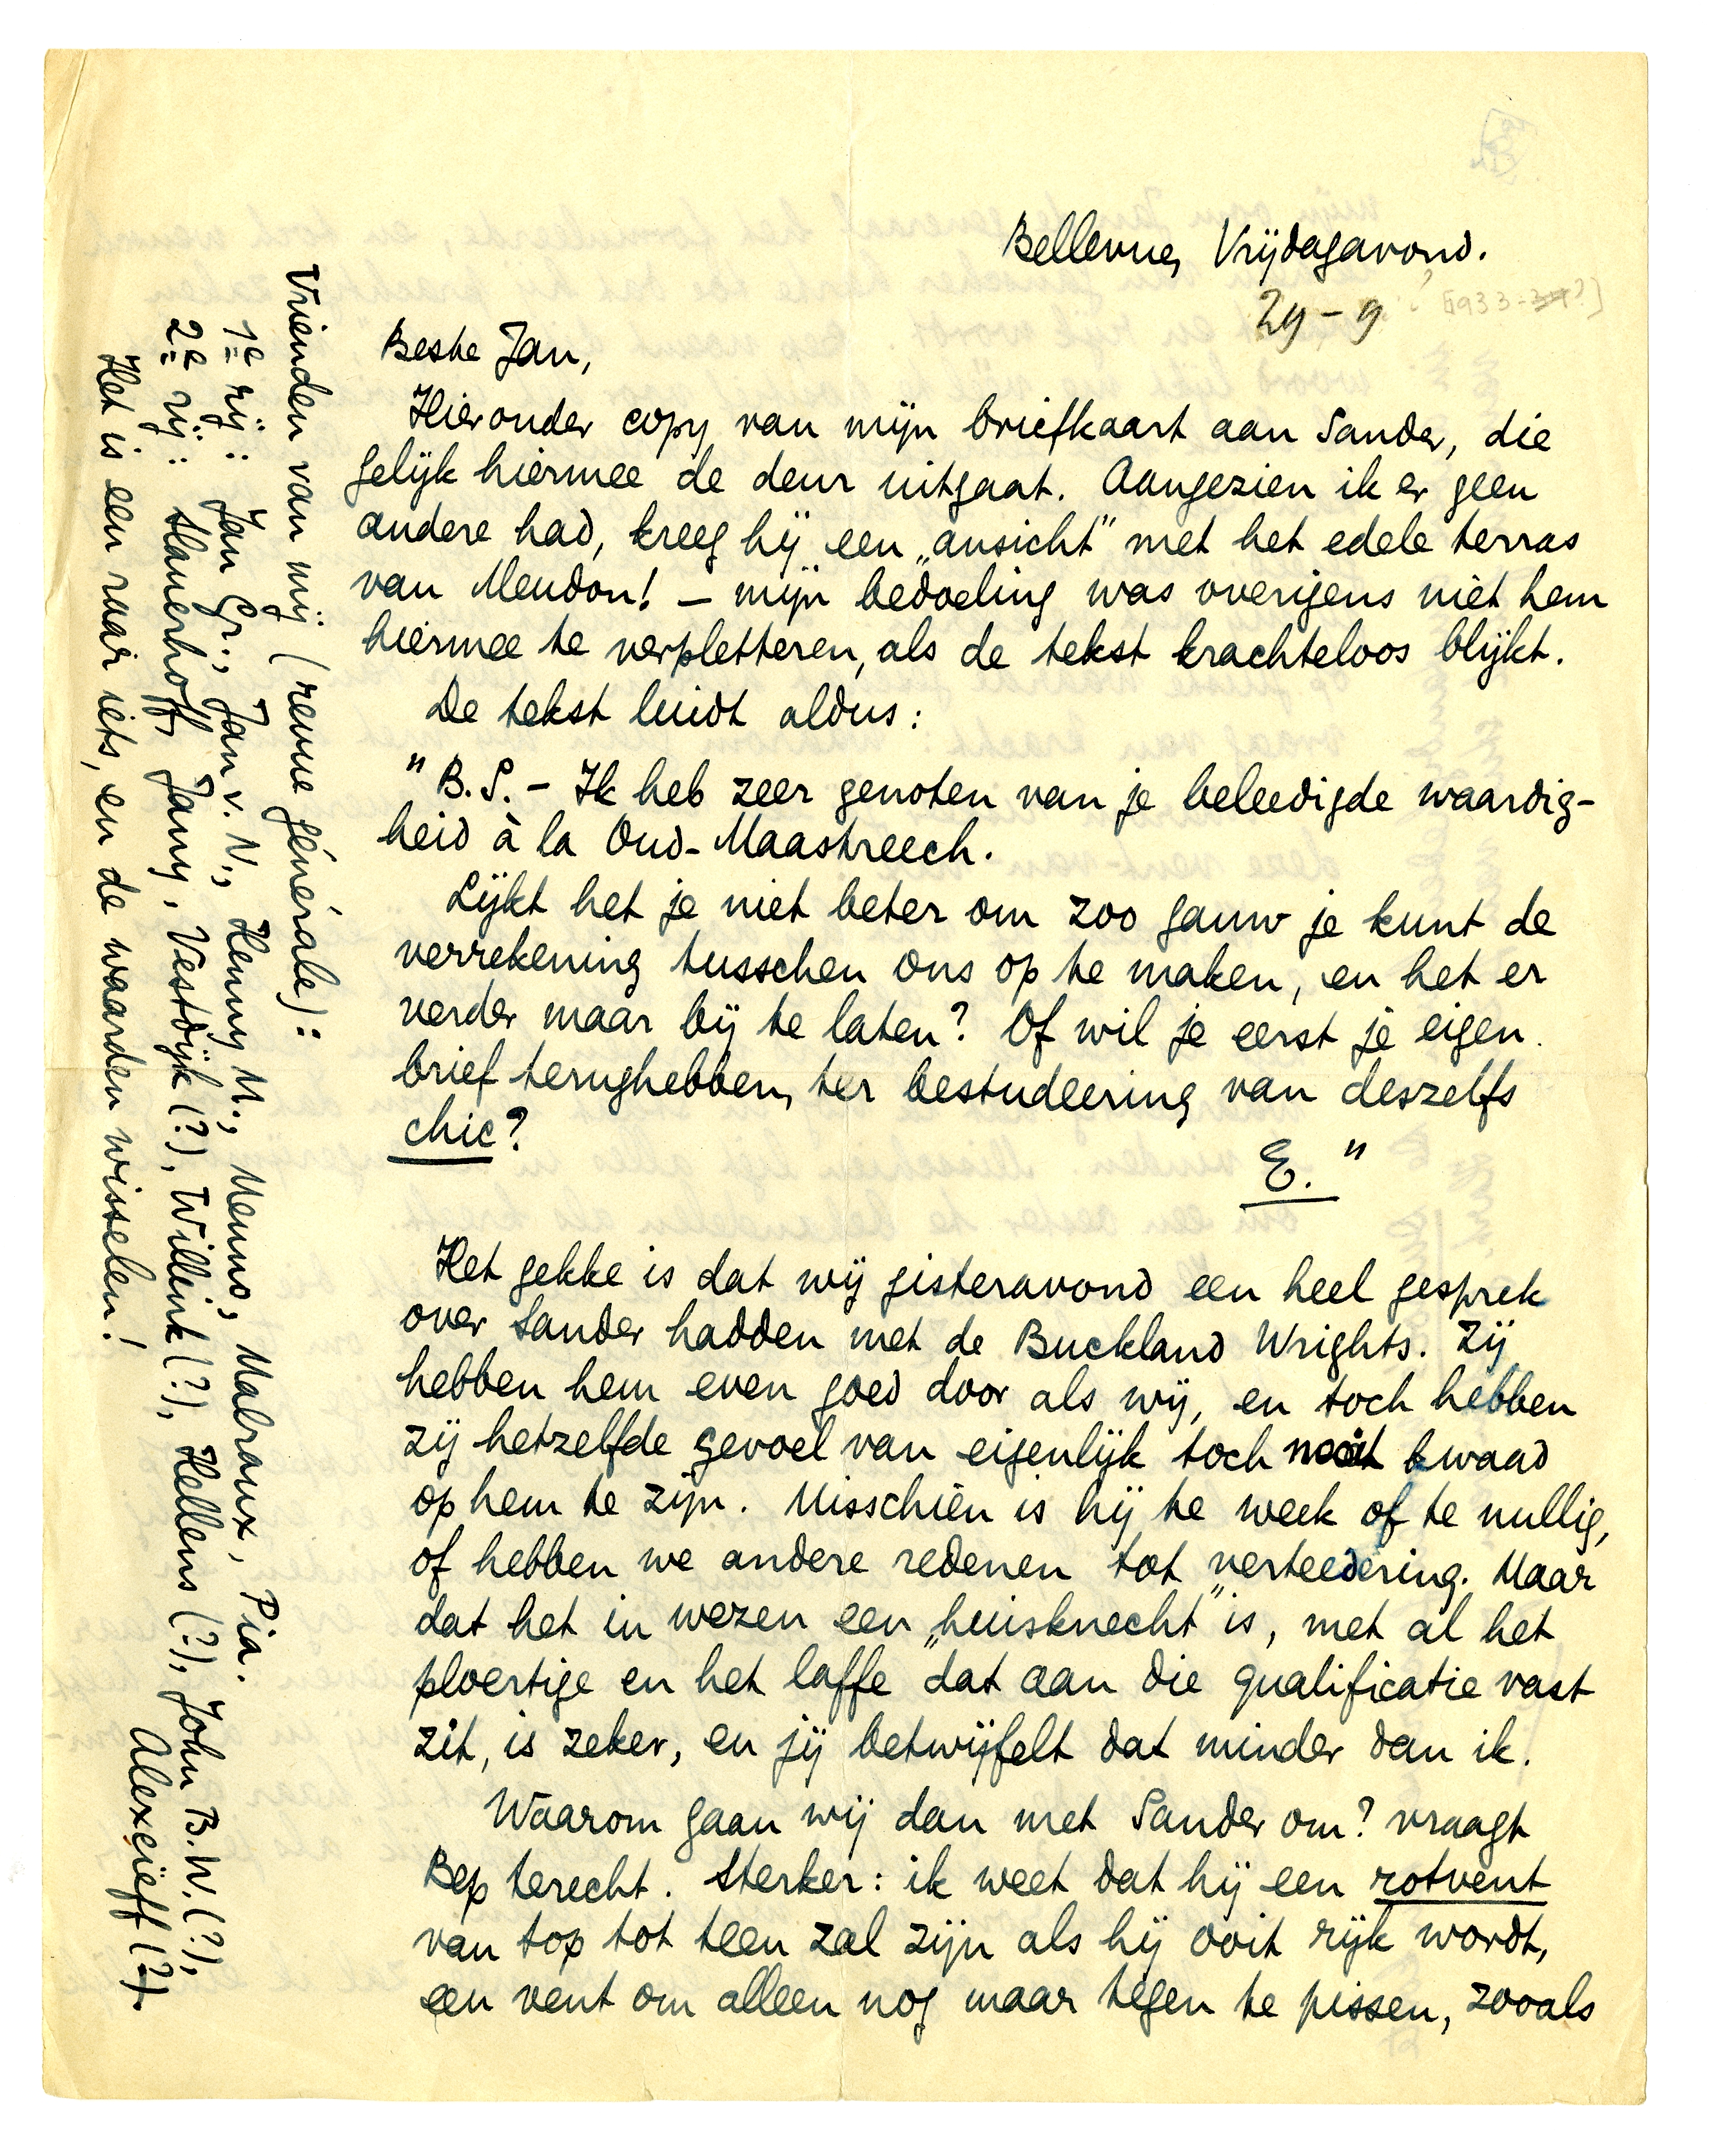 Bellevue, Vrijdagavond.
29-9 ? [1933-34?]
Beste Jan,
Hieronder copy van mijn briefkaart aan Sander, die
gelijk hiermee de deur uitgaat. Aangezien ik er geen
andere had, kreeg hij een „ansicht” met het edele terras
van Meudon! – mijn bedoeling was overigens niet hem
hiermee te verpletteren, als de tekst krachteloos blijkt.
De tekst luidt aldus:
"B.S. – Ik heb zeer genoten van je beleedigde waardig-
heid à la Oud-Maastreech.
Lijkt het je niet beter om zoo gauw je kunt de
verrekening tusschen ons op te maken, en het er
verder maar bij te laten? Of wil je eerst je eigen
brief terughebben, ter bestudeering van deszelfs
chic?
E."
Het gekke is dat wij gisteravond een heel gesprek
over Sander hadden met de Buckland Wrights. Zij
hebben hem even goed door als wij, en toch hebben
zij hetzelfde gevoel van eigenlijk toch nooit kwaad
op hem te zijn. Misschien is hij te week of te nullig,
of hebben we andere redenen tot verteedering. Maar
dat het in wezen een „huisknecht” is, met al het
ploertige en het laffe dat aan die qualificatie vast
zit, is zeker, en jij betwijfelt dat minder dan ik.
Waarom gaan wij dan met Sander om? vraagt
Bep terecht. Sterker: ik weet dat hij een rotvent
van top tot teen zal zijn als hij ooit rijk wordt,
een vent om alleen nog maar tegen te pissen, zooals
Vrienden van mij (revue générale):
1e rij: Jan Gr., Jan v. N., Henny M., Menno, Malraux, Pia.
2e rij: Slauerhoff, Jany, Vestdijk (?), Willink (?), Hellens (?), John B.W. (?),
Alexeieff (?).
Het is een raar iets, en de waarden wisselen!